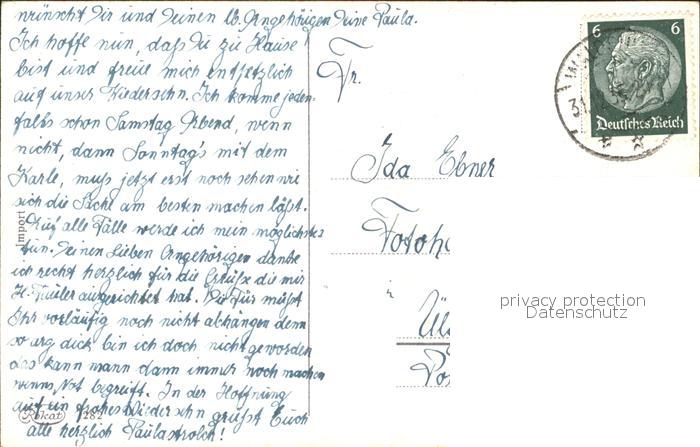 wünscht Dir und Deinen lb. Angehörigen Deine Paula.
Ich hoffe nun, daß Du zu Hause
bist und freue mich entsetzlich
auf unser Wiedersehn. Ich komme jeden-
falls schon Samstag Abend, wenn
nicht, dann Sonntag's mit dem
Karle, muß jetzt erst noch sehen wie
sich die Sache am besten machen läßt.
Auf alle Fälle werde ich mein möglichstes
tun. Deinen Lieben Angehörigen danke
ich recht herzlich für die Grüße die mir
H. ausgerichtet hat. Die Tür müßt
Ihr vorläufig noch nicht abhängen denn
so arg dick bin ich doch nicht geworden
das kann mann dann immer noch machen
wenns Not begreift. In der Hoffnung
auf ein frohes Wiedersehn grüßt Euch
alle herzlich Paulastrolch!
Import
Rokat 282
Fr.
Ida Ebner
Fotoh
Ül
Po
6 6
Deutsches Reich
31.
privacy protection
Datenschutz